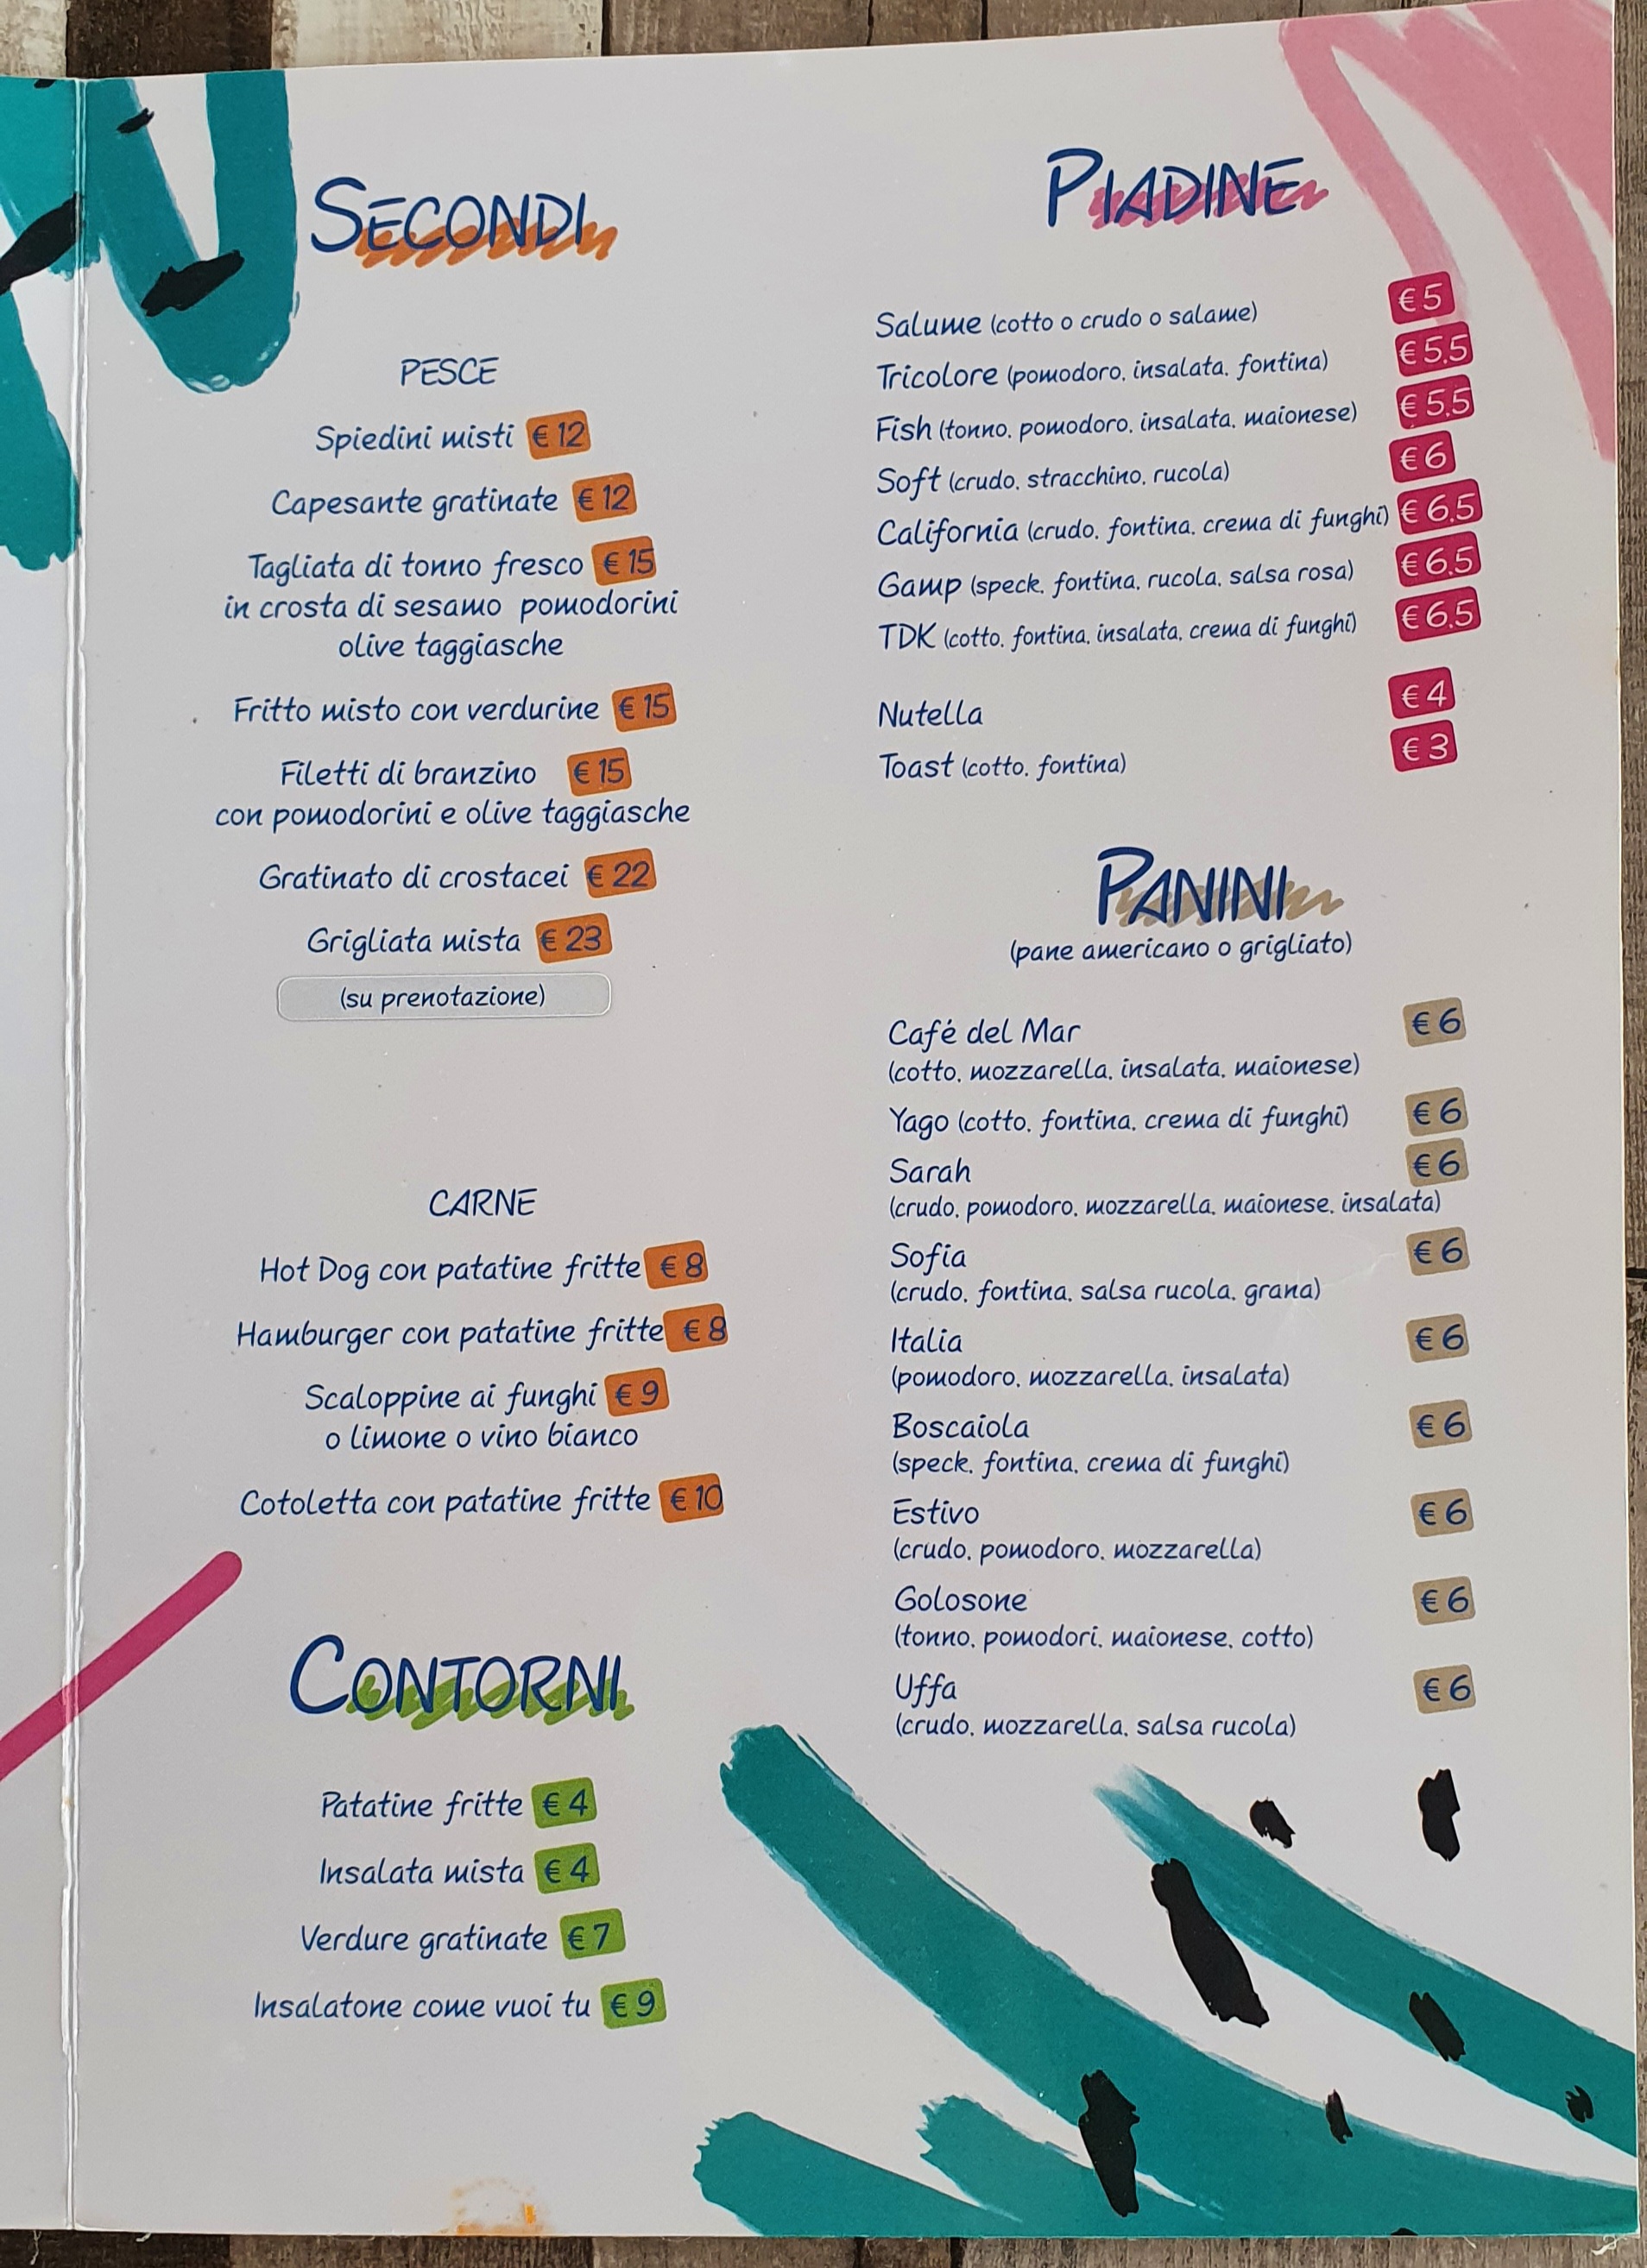 SECONDI
PESCE
Spiedini misti € 12
Capesante gratinate € 12
Tagliata di tonno fresco € 15
in crosta di sesamo pomodorini
olive taggiasche
Fritto misto con verdurine € 15
Filetti di branzino € 15
con pomodorini e olive taggiasche
Gratinato di crostacei € 22
Grigliata mista € 23
(su prenotazione)
CARNE
Hot Dog con patatine fritte € 8
Hamburger con patatine fritte € 8
Scaloppine ai funghi € 9
o limone o vino bianco
Cotoletta con patatine fritte € 10
CONTORNI
Patatine fritte € 4
Insalata mista € 4
Verdure gratinate € 7
Insalatone come vuoi tu € 9
PIADINE
Salume (cotto o crudo o salame) € 5
Tricolore (pomodoro, insalata, fontina) € 5,5
Fish (tonno, pomodoro, insalata, maionese) € 5,5
Soft (crudo, stracchino, rucola) € 6
California (crudo, fontina, crema di funghi) € 6,5
Gamp (speck, fontina, rucola, salsa rosa) € 6,5
TDK (cotto, fontina, insalata, crema di funghi) € 6,5
Nutella € 4
Toast (cotto, fontina) € 3
PANINI
(pane americano o grigliato)
Café del Mar € 6
(cotto, mozzarella, insalata, maionese)
Yago (cotto, fontina, crema di funghi) € 6
Sarah € 6
(crudo, pomodoro, mozzarella, maionese, insalata)
Sofia € 6
(crudo, fontina, salsa rucola, grana)
Italia € 6
(pomodoro, mozzarella, insalata)
Boscaiola € 6
(speck, fontina, crema di funghi)
Estivo € 6
(crudo, pomodoro, mozzarella)
Golosone € 6
(tonno, pomodori, maionese, cotto)
Uffa € 6
(crudo, mozzarella, salsa rucola)